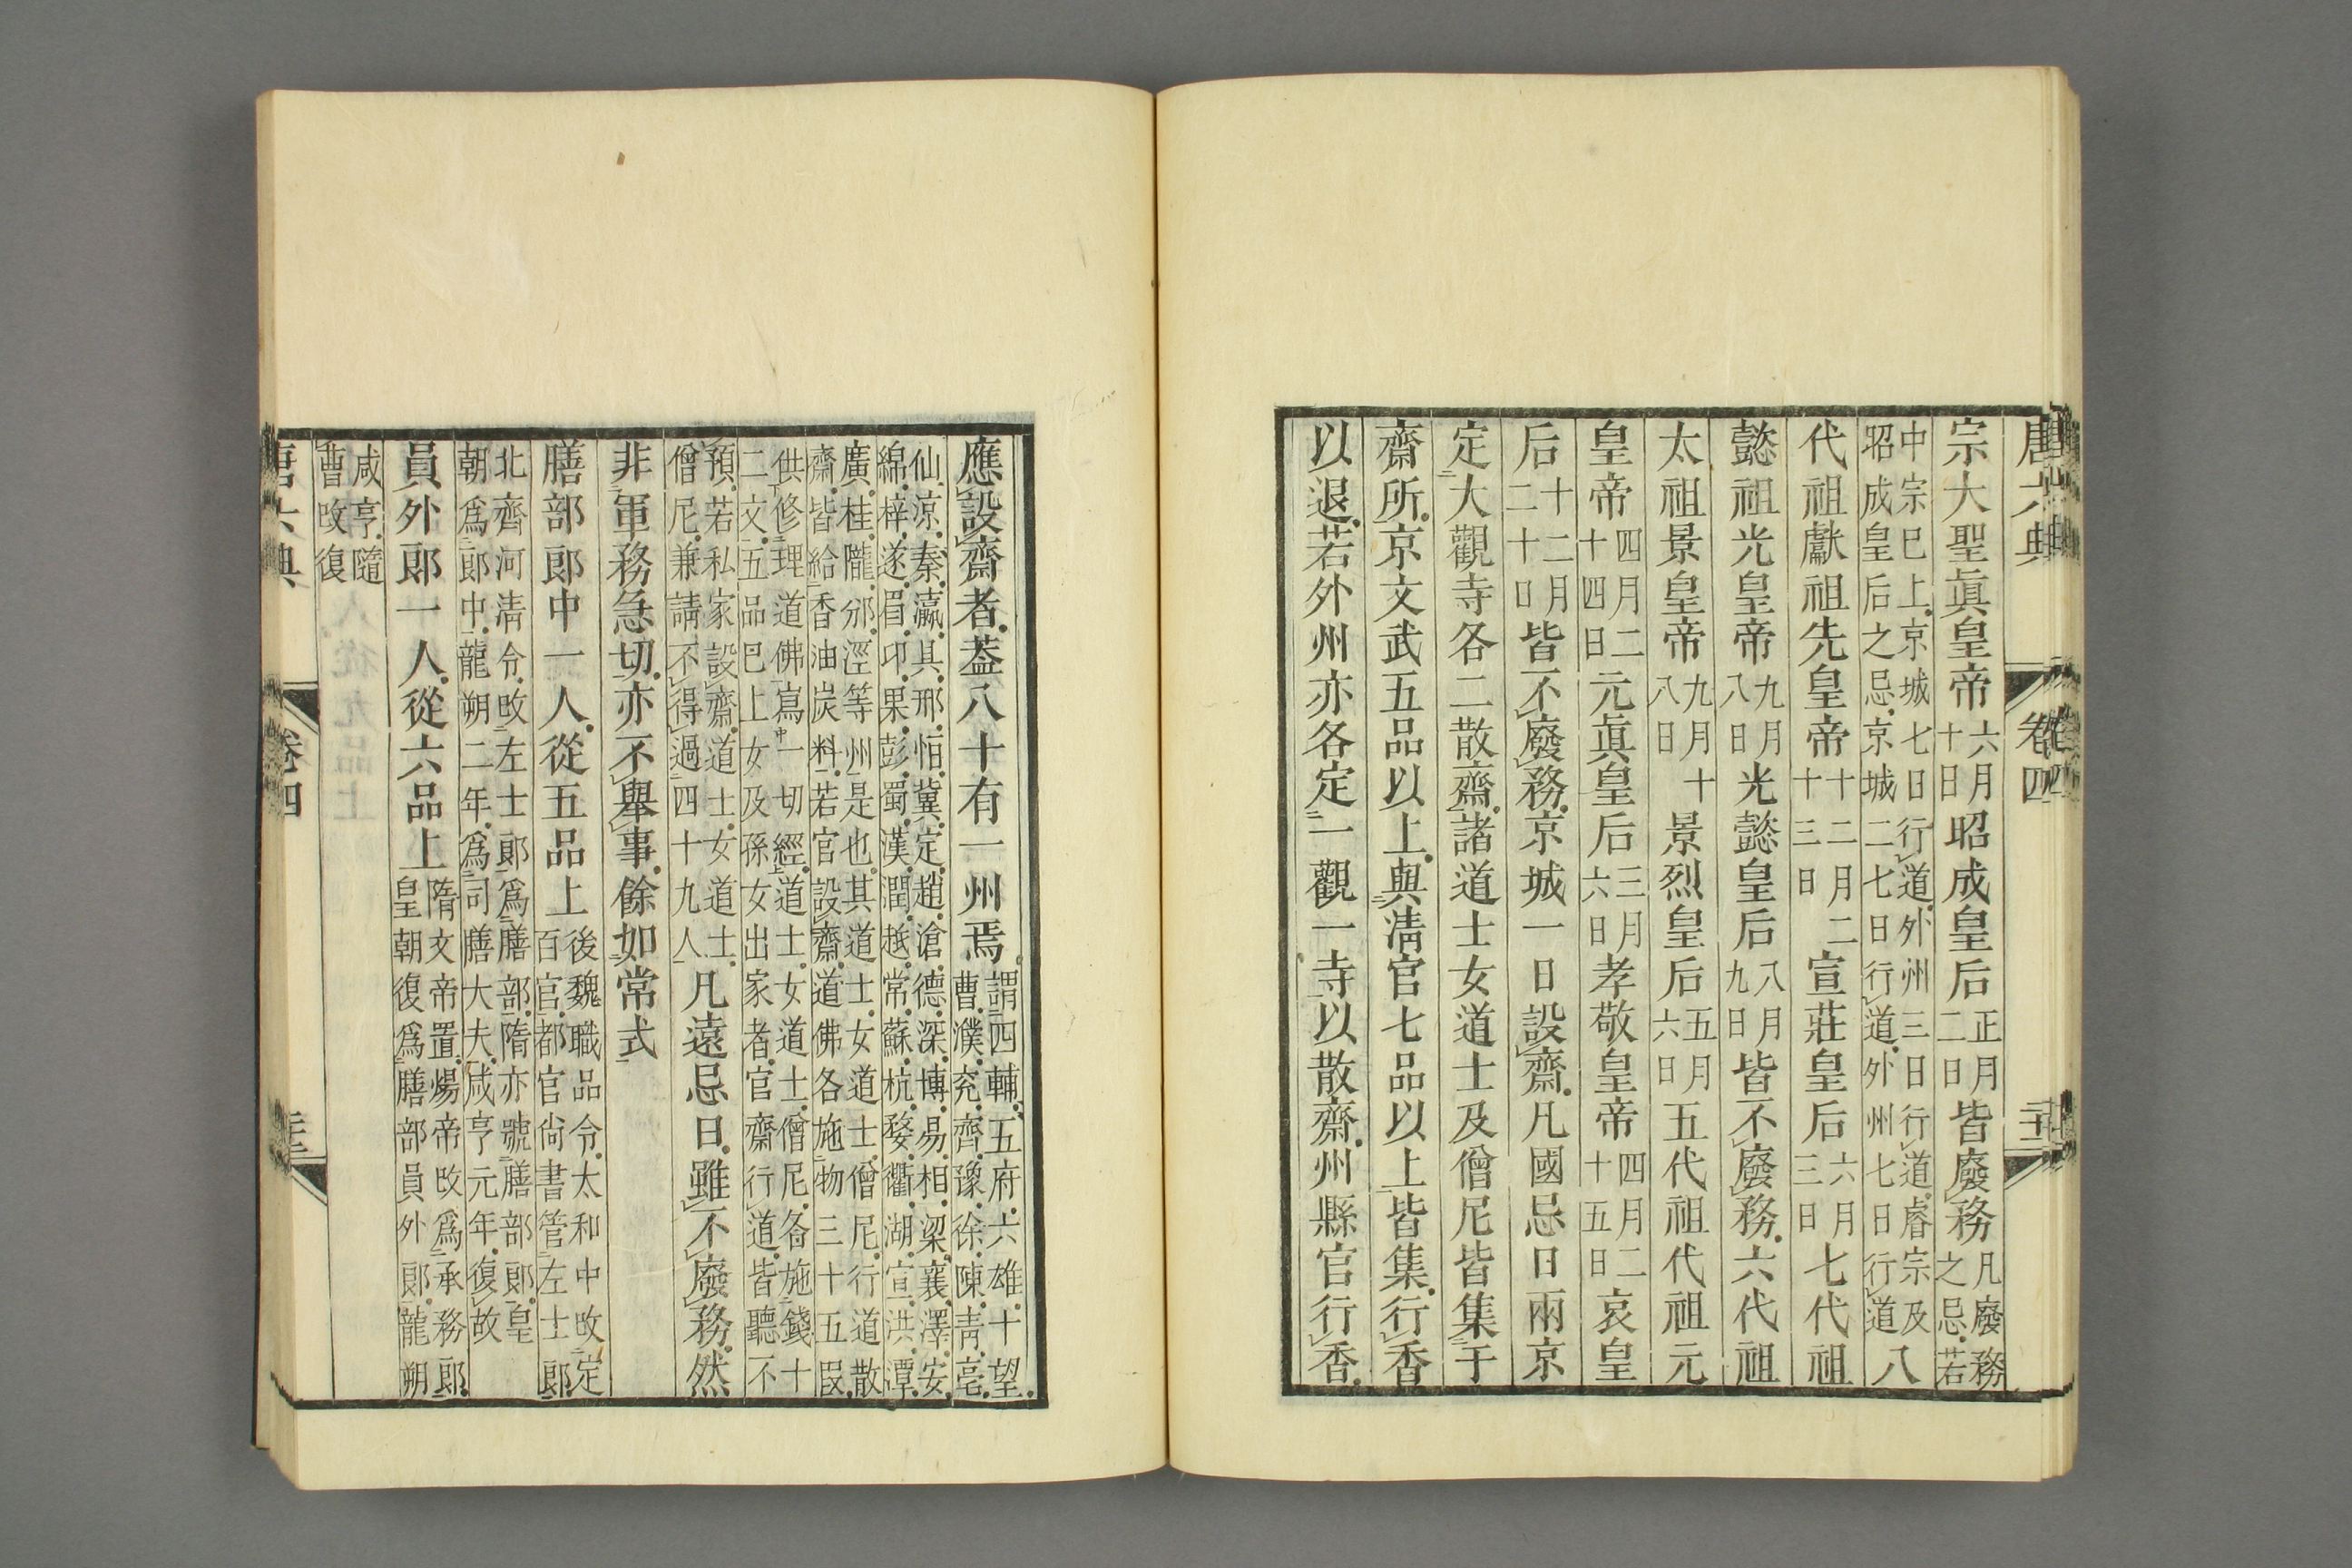 唐六典 卷四
宗大聖眞皇帝六月十日昭成皇后正月二日皆廢務凡廢務之忌若
中宗巳上京城七日行道外州三日行道睿宗及
昭成皇后之忌京城二七日行道外州七日行道八
代祖獻祖先皇帝十二月二十三日宣莊皇后六月三日七代祖
懿祖光皇帝九月八日光懿皇后八月九日皆不廢務六代祖
太祖景皇帝九月十八日景烈皇后五月六日五代祖代祖元
皇帝四月二十四日元眞皇后三月六日孝敬皇帝四月二十五日哀皇
后十二月二十日皆不廢務京城一日設齋凡國忌日兩京
定大觀寺各二散齋諸道士女道士及僧尼皆集于
齋所京文武五品以上與淸官七品以上皆集行香
以退若外州亦各定一觀一寺以散齋州縣官行香
應設齋者葢八十有一州焉謂四輔五府六雄十望曹濮兖齊豫徐陳靑亳
仙凉秦瀛具邢怕冀定趙滄德深博易相梁襄澤安
綿梓遂眉卭果彭蜀漢潤越常蘇杭婺衢湖宣洪潭
廣桂隴邠涇等州是也其道士女道士僧尼行道散
齋皆給香油炭料若官設齋道佛各施物三十五段
供修理道佛寫一切經道士女道士僧尼各施錢十
二文五品巳上女及孫女出家者官齋行道皆聽不
預若私家設齋道士女道士僧尼兼請不得過四十九人凡遠忌日雖不廢務然
非軍務急切亦不舉事餘如常式
膳部郎中一人從五品上後魏職品令太和中改定百官都官尙書管左士郎
北齊河淸令改左士郎爲膳部隋亦號膳部郎皇
朝爲郎中龍朔二年爲司膳大夫咸亨元年復故
員外郎一人從六品上隋文帝置煬帝改爲承務郎皇朝復爲膳部員外郎龍朔
咸亨隨
曹改復
唐六典 卷四